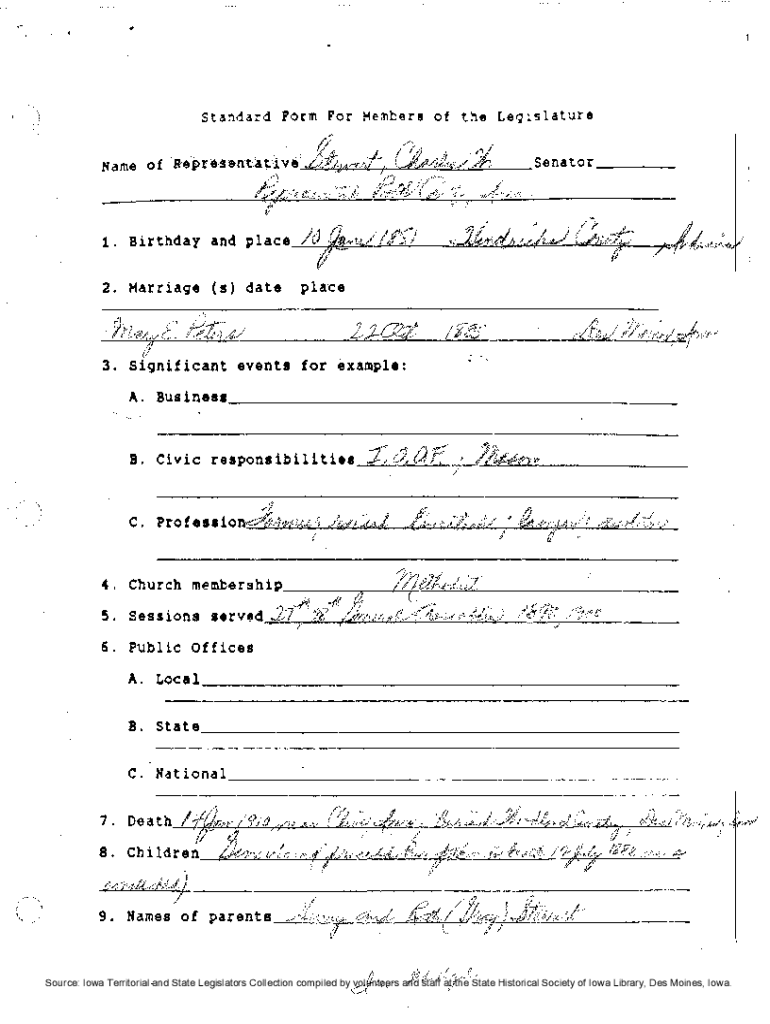 1
Standard Form For Members of the Legislature
Name of Representative Stewart, Charles W. Senator
Representative Polk County, Iowa
1. Birthday and place 10 June 1851 Hendricks County Indiana
2. Marriage (s) date place
Mary E. Peters 22 Oct 1885 Des Moines, Iowa
3. Significant events for example:
A. Business
B. Civic responsibilities I.O.O.F. ; Mason
C. Profession Farmer;
4. Church membership Methodist
5. Sessions served 27th, 28th General Assemblies 1898, 1900
6. Public Offices
A. Local
B. State
C. National
7. Death Jan 1910 near Iowa; Buried Woodland Cemetery, Des Moines, Iowa
8. Children preceded in death July
9. Names of parents and Ruth ( ) Stewart
Source: Iowa Territorial and State Legislators Collection compiled by volunteers and staff at the State Historical Society of Iowa Library, Des Moines, Iowa.